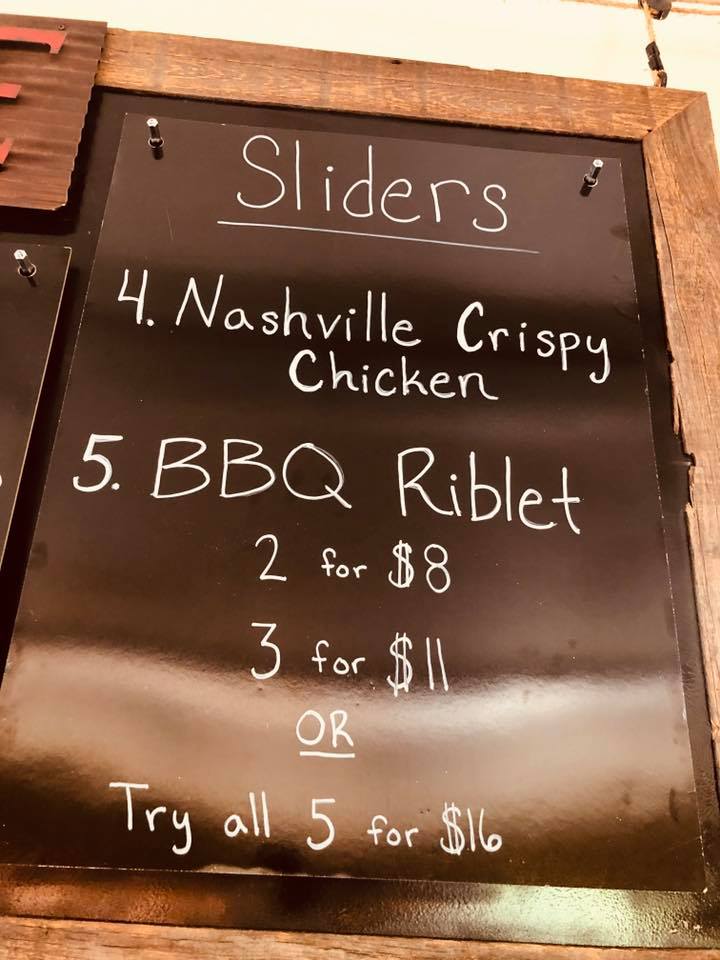 Sliders
4. Nashville Crispy
Chicken
5. BBQ Riblet
2 for $8
3 for $11
OR
Try all 5 for $16